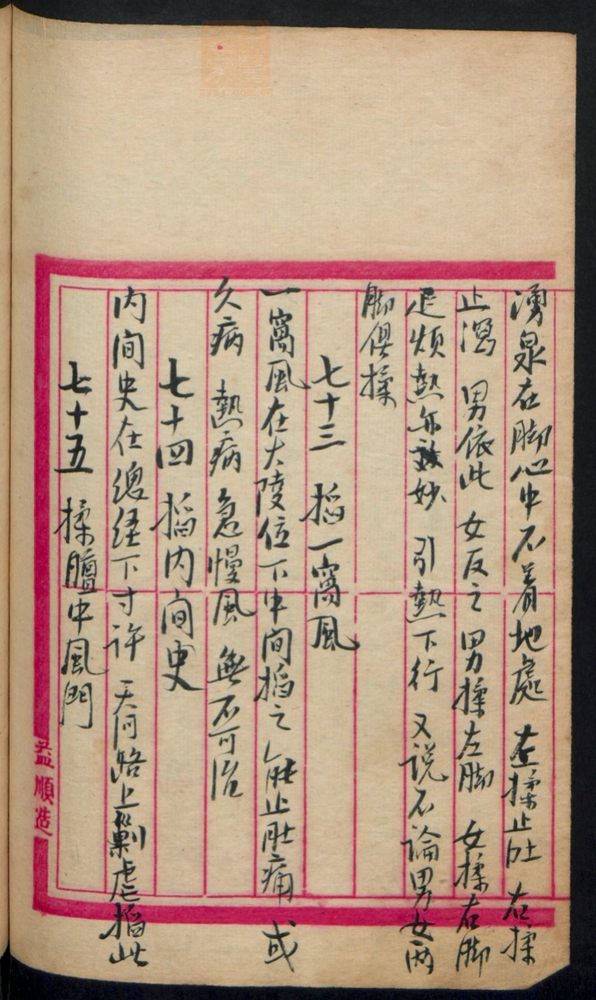 湧泉在脚心中不着地處 左揉止吐 右揉
止瀉 男依此 女反之 男揉左脚 女揉右脚
足煩熱亦效妙 引熱下行 又说不論男女两
脚俱揉
七十三 掐一窩風
一窩風在大陵位下中间掐之 能止肚痛 或
久病 熱病 急慢風 無不可治
七十四 掐内间史
内间史在總经下寸许 天河路上 掐此
七十五 揉膻中風門
益順造